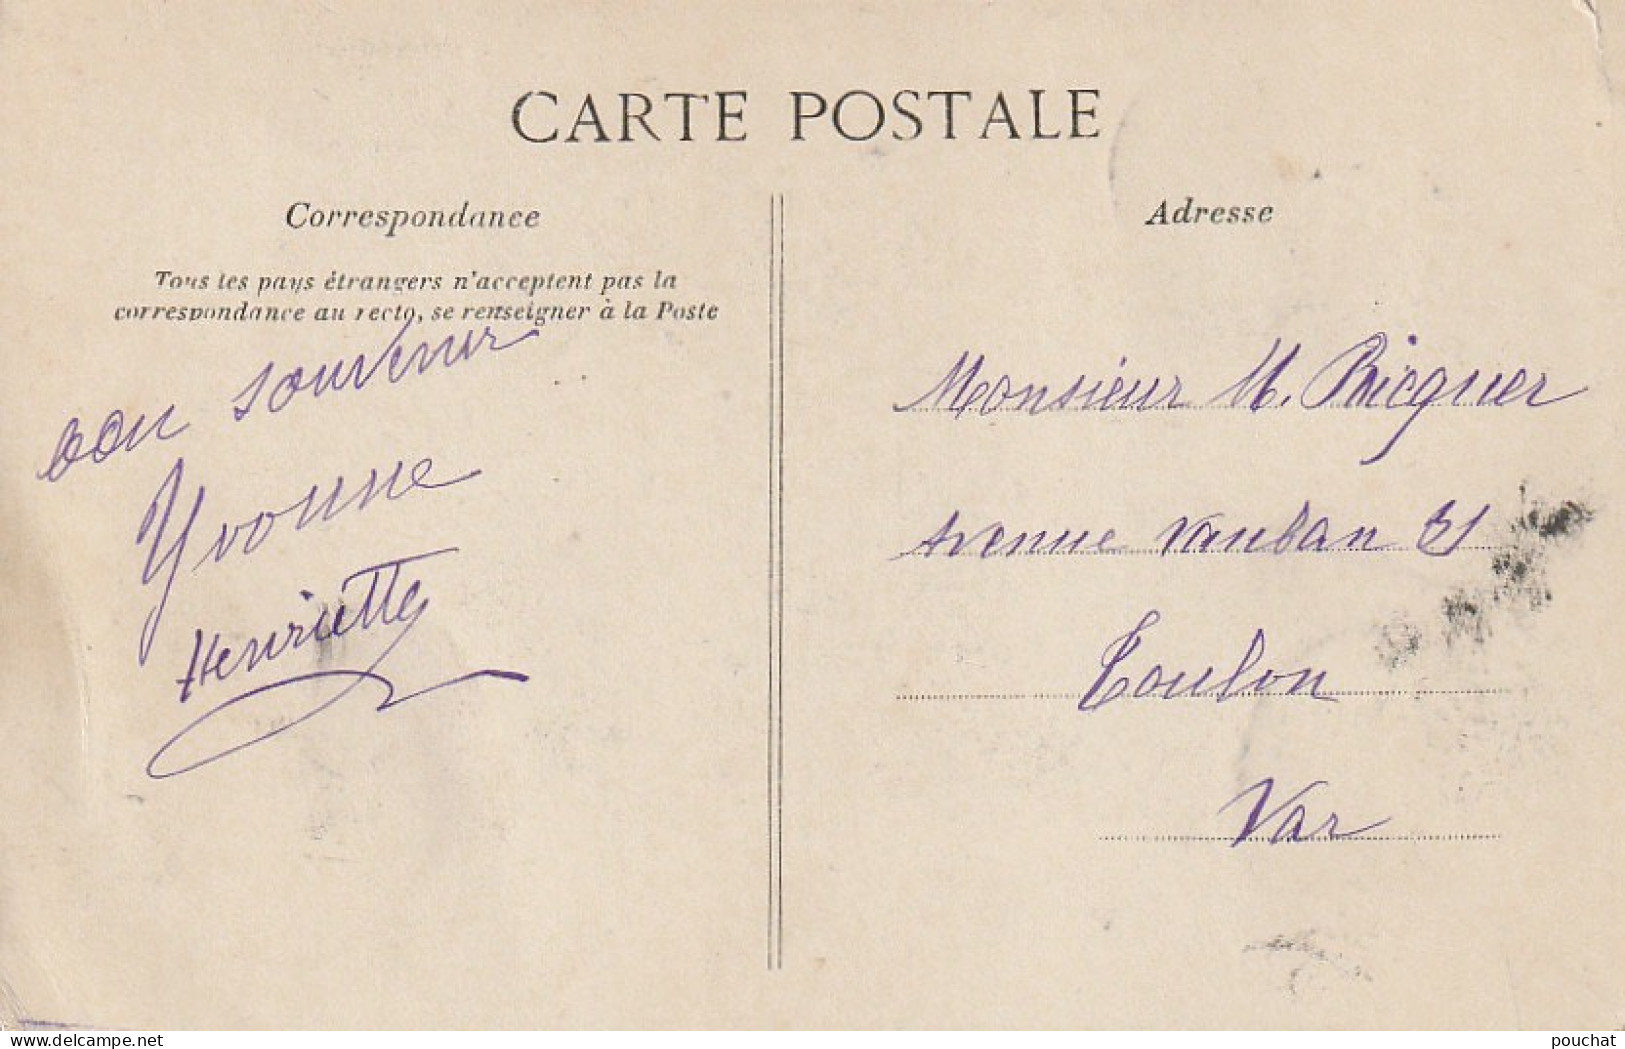 CARTE POSTALE
Correspondance
Tous les pays étrangers n'acceptent pas la
correspondance au recto, se renseigner à la Poste
bon souvenir
Yvonne
Henriette
Adresse
Monsieur M.
Avenue Vauban 21
Toulon
Var
www.delcampe.net
pouchat